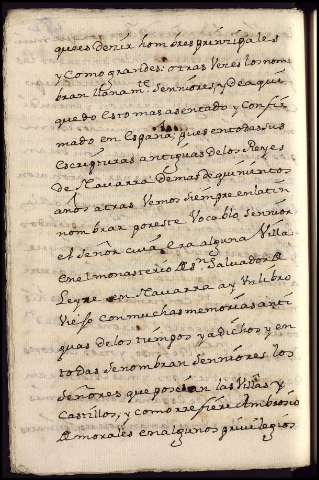 que es dezir hombres prinzipales
y Como grandes: otras Vezes lo nom
bran llanamte. Senniores, y de aqui
quedo Esto mas asentado y Confir
mado en España, pues en todas sus
Escripturas antiguas de los Reyes
De Navarra demas de quinientos
años atras Vemos siempre en latin
nombrar por este Vocablo, Sennior
el Señor cuia era alguna Villa
En el monasterio de Sn. Salvador de
Leyre en Navarra ay Un libro
Viejo con muchas memorias anti
guas de los tiempos ya dichos y en
todas se nombran Senniores, los
Señores que poseian las Villas y
Castillos, y como refiere Ambrosio
de Morales en algunos privilegios